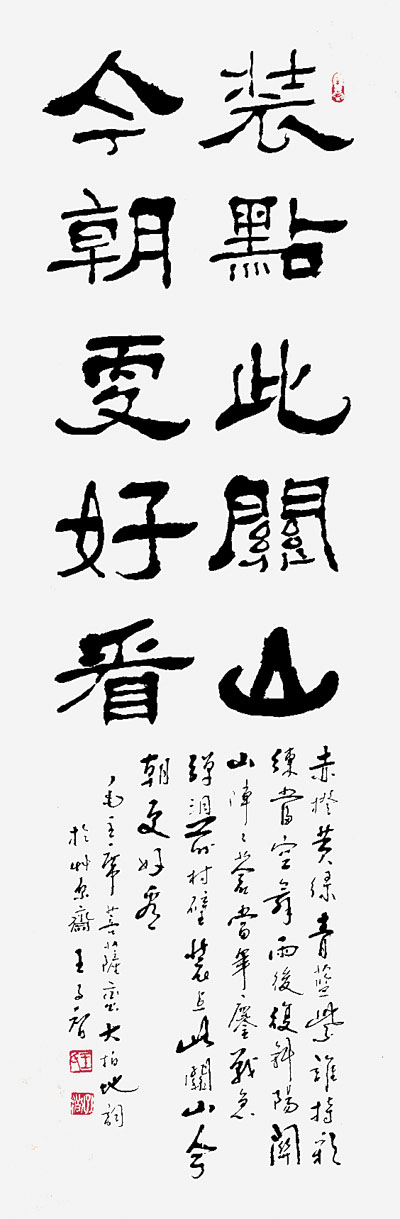 裝點此關山
今朝更好看
赤橙黃綠青藍紫誰持彩
練當空舞雨後復斜陽關
山陣〻蒼當年鏖戰急
彈洞前村壁裝点此關山今
朝更好看
毛主席菩薩蠻大柏地詞
於艸齋王子